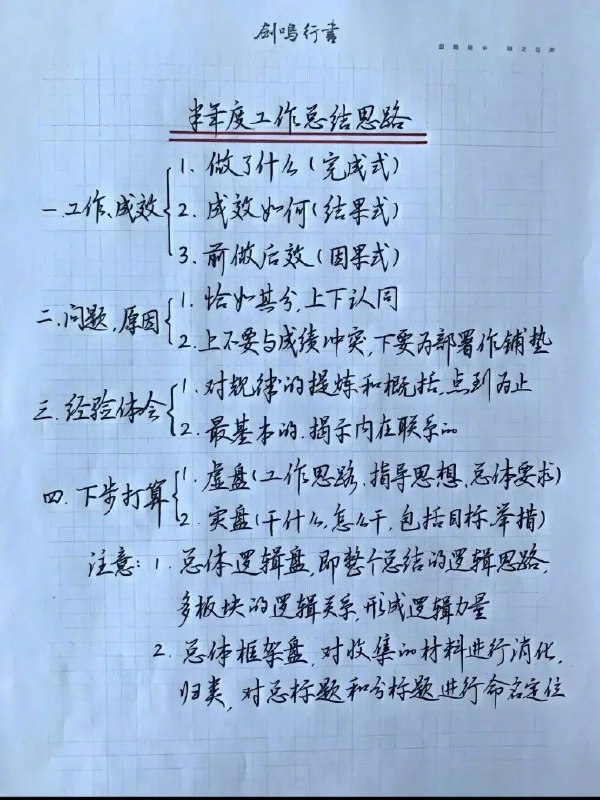 剑鸣行书
半年度工作总结思路
一.工作、成效
1. 做了什么(完成式)
2. 成效如何(结果式)
3. 前做后效(因果式)
二.问题,原因
1. 恰如其分,上下认同
2. 上不要与成绩冲突,下要为部署作铺垫
三.经验体会
1. 对规律的提炼和概括,点到为止
2. 最基本的.揭示内在联系的
四.下步打算
1. 虚盘(工作思路、指导思想、总体要求)
2. 实盘(干什么,怎么干,包括目标、举措)
注意: 1. 总体逻辑盘,即整个总结的逻辑思路,
多板块的逻辑关系,形成逻辑力量
2. 总体框架盘,对收集的材料进行消化,
归类,对总标题和分标题进行命名定位